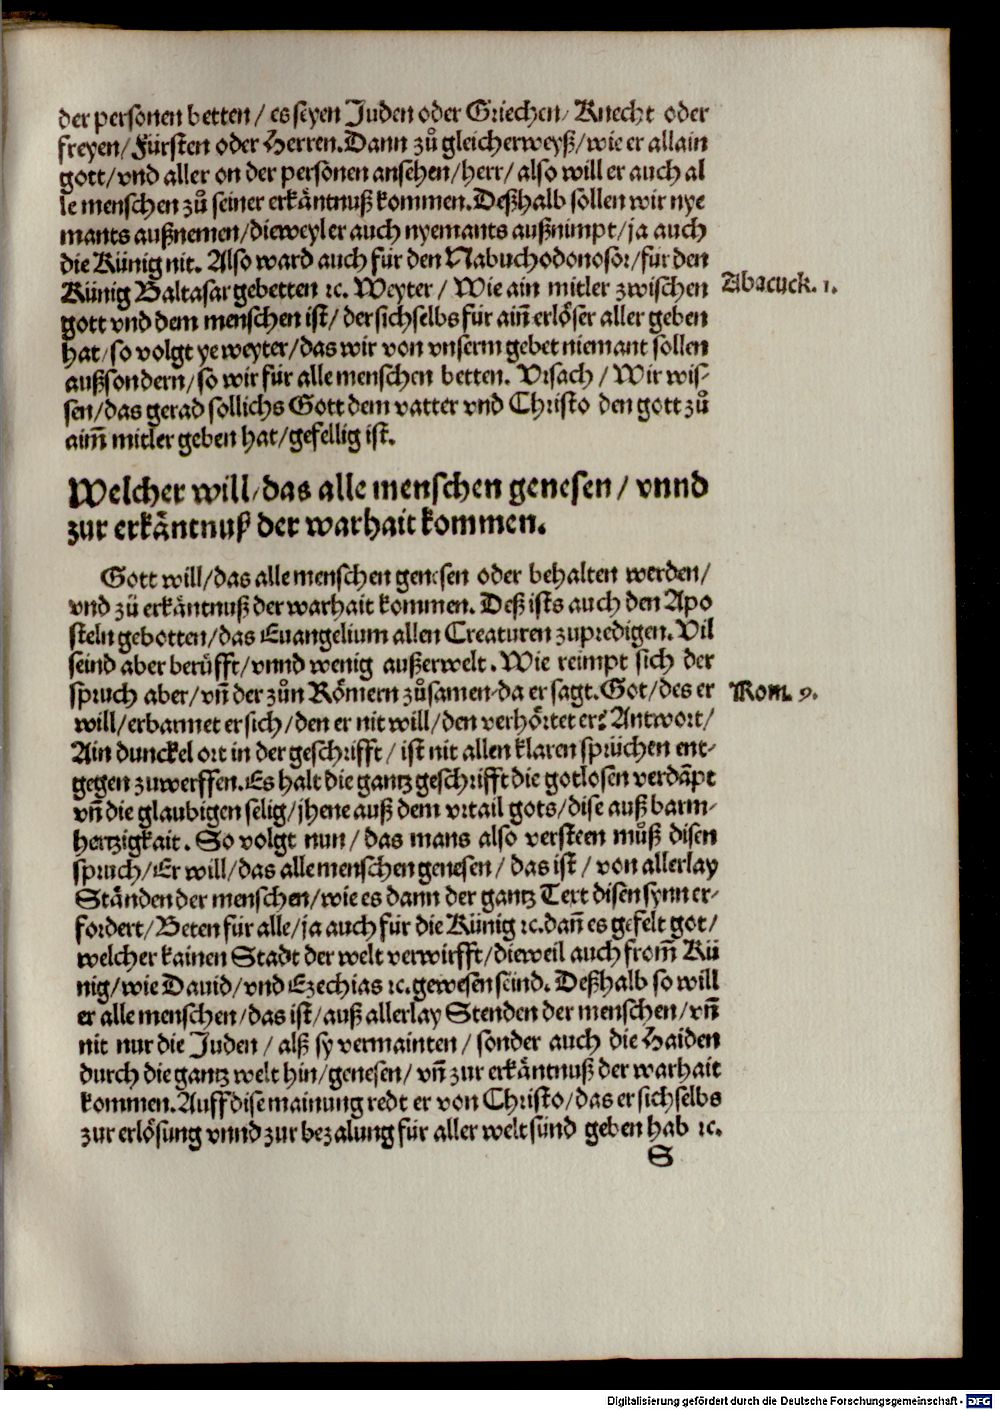 der personen betten / es seyen Juden oder Griechen / Knecht oder
freyen / Fürsten oder Herren. Dann zů gleicherweyß / wie er allain
gott / vnd aller on der personen ansehen / herr / also will er auch al
le menschen zů seiner erkäntnuß kommen. Deßhalb sollen wir nye
mants außnemen / dieweyl er auch nyemants außnimpt / ja auch
die Künig nit. Also ward auch für den Nabuchodonosor / für den
Künig Baltasar gebetten ꝛc. Weyter / Wie ain mitler zwischen
Abacuck. 1.
gott vnd dem menschen ist / der sich selbs für ain̄ erlöser aller geben
hat / so volgt ye weyter / das wir von vnserm gebet niemant sollen
außsondern / so wir für alle menschen betten. Vrsach / Wir wis-
sen / das gerad sollichs Gott dem vatter vnd Christo den gott zů
aim̄ mitler geben hat / gefellig ist.
Welcher will / das alle menschen genesen / vnnd
zur erkäntnuß der warhait kommen.
Gott will / das alle menschen genesen oder behalten werden /
vnd zů erkäntnuß der warhait kommen. Deß ists auch den Apo
steln gebotten / das Euangelium allen Creaturen zupredigen. Vil
seind aber berůfft / vnnd wenig außerwelt. Wie reimpt sich der
spruch aber / vn̄ der zůn Römern zůsamen / da er sagt. Got / des er
Rom. 9.
will / erbarmet er sich / den er nit will / den verhörtet er? Antwort /
Ain dunckel ort in der geschrifft / ist nit allen klaren sprüchen ent-
gegen zuwerffen. Es halt die gantz geschrifft die gotlosen verdāpt
vn̄ die glaubigen selig / jhene auß dem vrtail gots / dise auß barm-
hertzigkait. So volgt nun / das mans also versteen můß disen
spruch / Er will / das alle menschen genesen / das ist / von allerlay
Ständen der menschen / wie es dann der gantz Text disen synn er-
fordert / Beten für alle / ja auch für die Künig ꝛc. dan̄ es gefelt got /
welcher kainen Stadt der welt verwirfft / dieweil auch from̄ Kü
nig / wie Dauid / vnd Ezechias ꝛc. gewesen seind. Deßhalb so will
er alle menschen / das ist / auß allerlay Stenden der menschen / vn̄
nit nur die Juden / alß sy vermainten / sonder auch die Haiden
durch die gantz welt hin / genesen / vn̄ zur erkäntnuß der warhait
kommen. Auff dise mainung redt er von Christo / das er sich selbs
zur erlösung vnnd zur bezalung für aller welt sünd geben hab ꝛc.
S
Digitalisierung gefördert durch die Deutsche Forschungsgemeinschaft - DFG